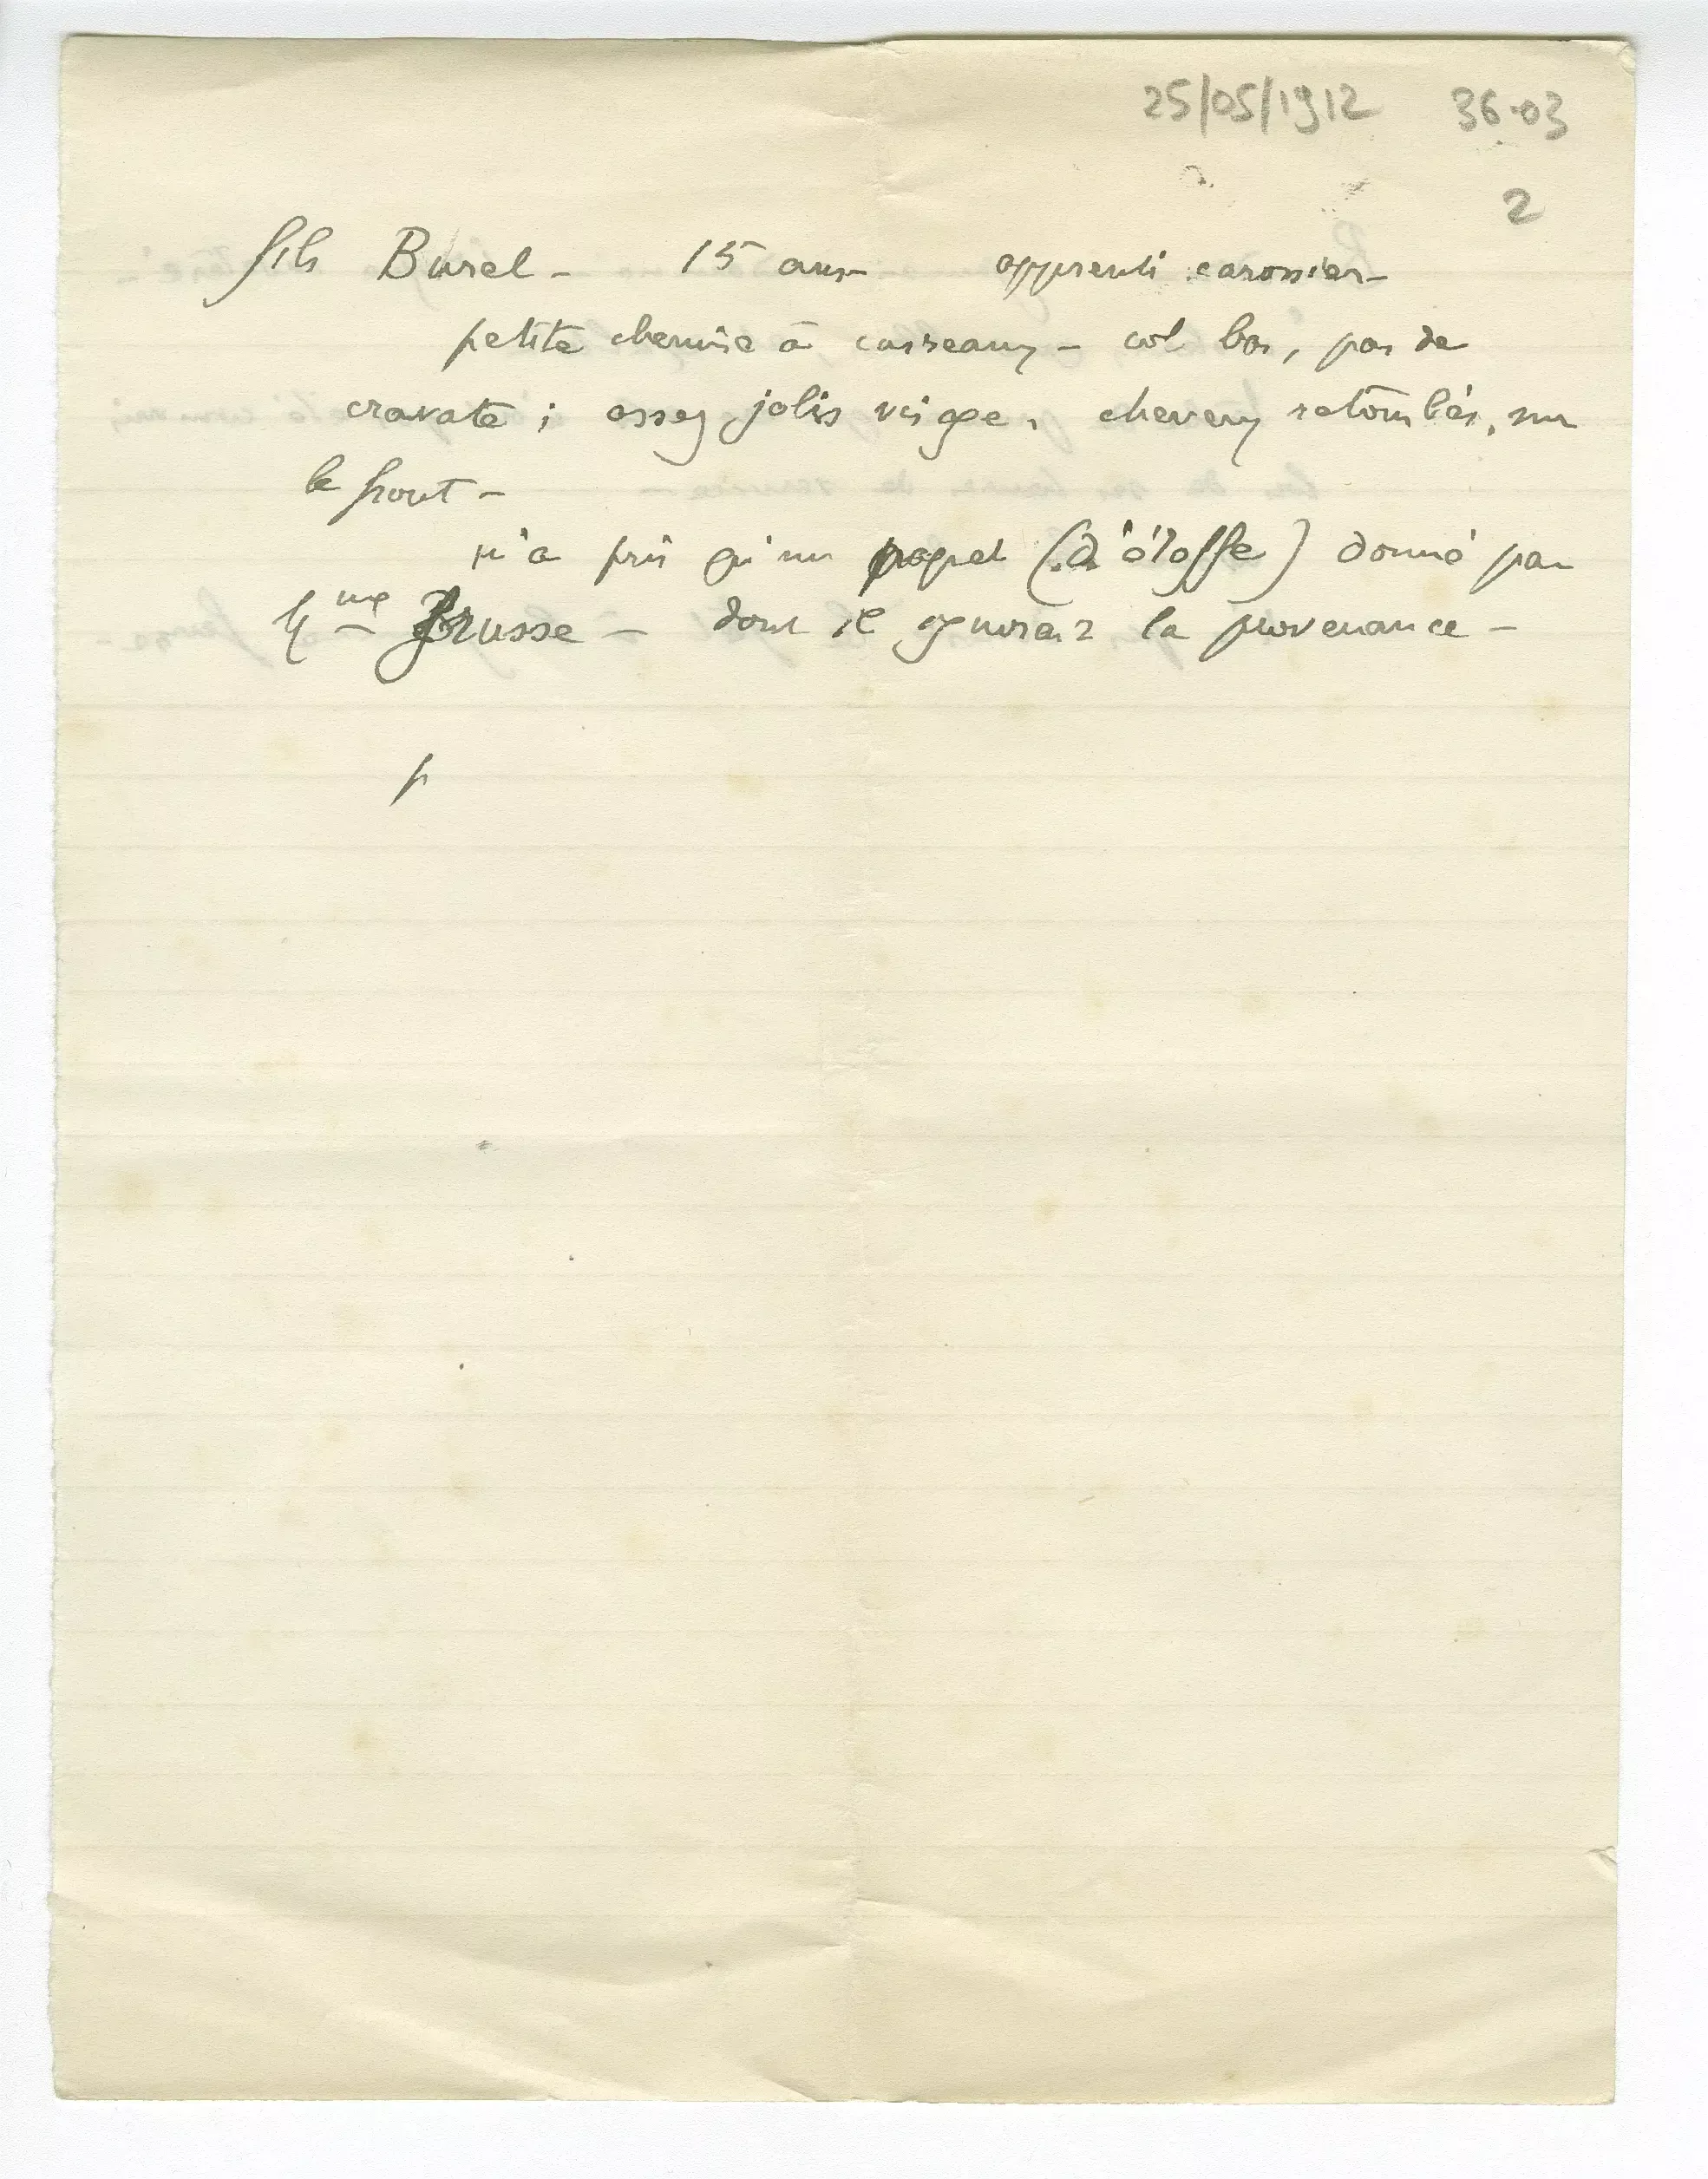 25/05/1912 36-03
2
fils Burel - 15 ans apprenti carossier -
petite chemise à carreaux - col bas, pas de
cravate ; assez jolis visage, cheveux retombés, sur
le front -
n'a pris qu'un paquet (d'étoffe) donné par
Mme Brusse - dont il ignorait la provenance -
p